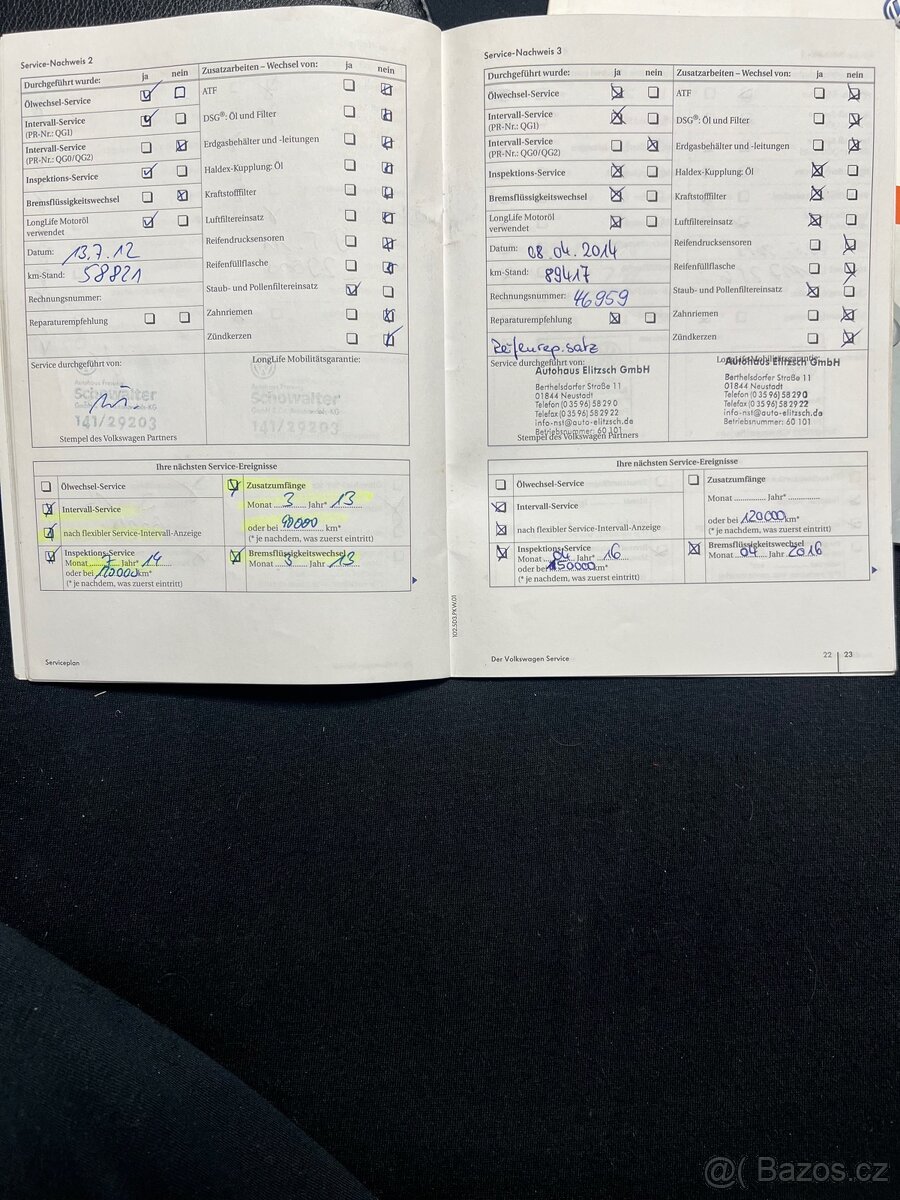 Service-Nachweis 2
Durchgeführt wurde: ja nein
Ölwechsel-Service
Intervall-Service
(PR-Nr.: QG1)
Intervall-Service
(PR-Nr.: QG0/QG2)
Inspektions-Service
Bremsflüssigkeitswechsel
LongLife Motoröl
verwendet
Datum: 13.7.12
km-Stand: 58821
Rechnungsnummer:
Reparaturempfehlung
Zusatzarbeiten – Wechsel von: ja nein
ATF
DSG®: Öl und Filter
Erdgasbehälter und -leitungen
Haldex-Kupplung: Öl
Kraftstofffilter
Luftfiltereinsatz
Reifendrucksensoren
Reifenfüllflasche
Staub- und Pollenfiltereinsatz
Zahnriemen
Zündkerzen
Service durchgeführt von:
Schowalter
141/29203
Stempel des Volkswagen Partners
LongLife Mobilitätsgarantie:
Schowalter
141/29203
Ihre nächsten Service-Ereignisse
Ölwechsel-Service
Intervall-Service
nach flexibler Service-Intervall-Anzeige
Inspektions-Service
Monat 7 Jahr* 14
oder bei km*
(* je nachdem, was zuerst eintritt)
Zusatzumfänge
Monat 3 Jahr* 13
oder bei 90000 km*
(* je nachdem, was zuerst eintritt)
Bremsflüssigkeitswechsel
Monat 3 Jahr 13
Serviceplan
102.5D3.PKW.01
Service-Nachweis 3
Durchgeführt wurde: ja nein
Ölwechsel-Service
Intervall-Service
(PR-Nr.: QG1)
Intervall-Service
(PR-Nr.: QG0/QG2)
Inspektions-Service
Bremsflüssigkeitswechsel
LongLife Motoröl
verwendet
Datum: 08.04.2014
km-Stand: 89417
Rechnungsnummer: 46959
Reparaturempfehlung
Reifenrep.satz
Zusatzarbeiten – Wechsel von: ja nein
ATF
DSG®: Öl und Filter
Erdgasbehälter und -leitungen
Haldex-Kupplung: Öl
Kraftstofffilter
Luftfiltereinsatz
Reifendrucksensoren
Reifenfüllflasche
Staub- und Pollenfiltereinsatz
Zahnriemen
Zündkerzen
Service durchgeführt von:
Autohaus Elitzsch GmbH
Berthelsdorfer Straße 11
01844 Neustadt
Telefon (0 35 96) 58 29 0
Telefax (0 35 96) 58 29 22
info-nst@auto-elitzsch.de
Betriebsnummer: 60 101
Stempel des Volkswagen Partners
LongLife Mobilitätsgarantie:
Autohaus Elitzsch GmbH
Berthelsdorfer Straße 11
01844 Neustadt
Telefon (0 35 96) 58 29 0
Telefax (0 35 96) 58 29 22
info-nst@auto-elitzsch.de
Betriebsnummer: 60 101
Ihre nächsten Service-Ereignisse
Ölwechsel-Service
Intervall-Service
nach flexibler Service-Intervall-Anzeige
Inspektions-Service
Monat 04 Jahr* 16
oder bei 150000 km*
(* je nachdem, was zuerst eintritt)
Zusatzumfänge
Monat Jahr*
oder bei 120000 km*
(* je nachdem, was zuerst eintritt)
Bremsflüssigkeitswechsel
Monat 04 Jahr 2016
Der Volkswagen Service
22 | 23
@( Bazos.cz